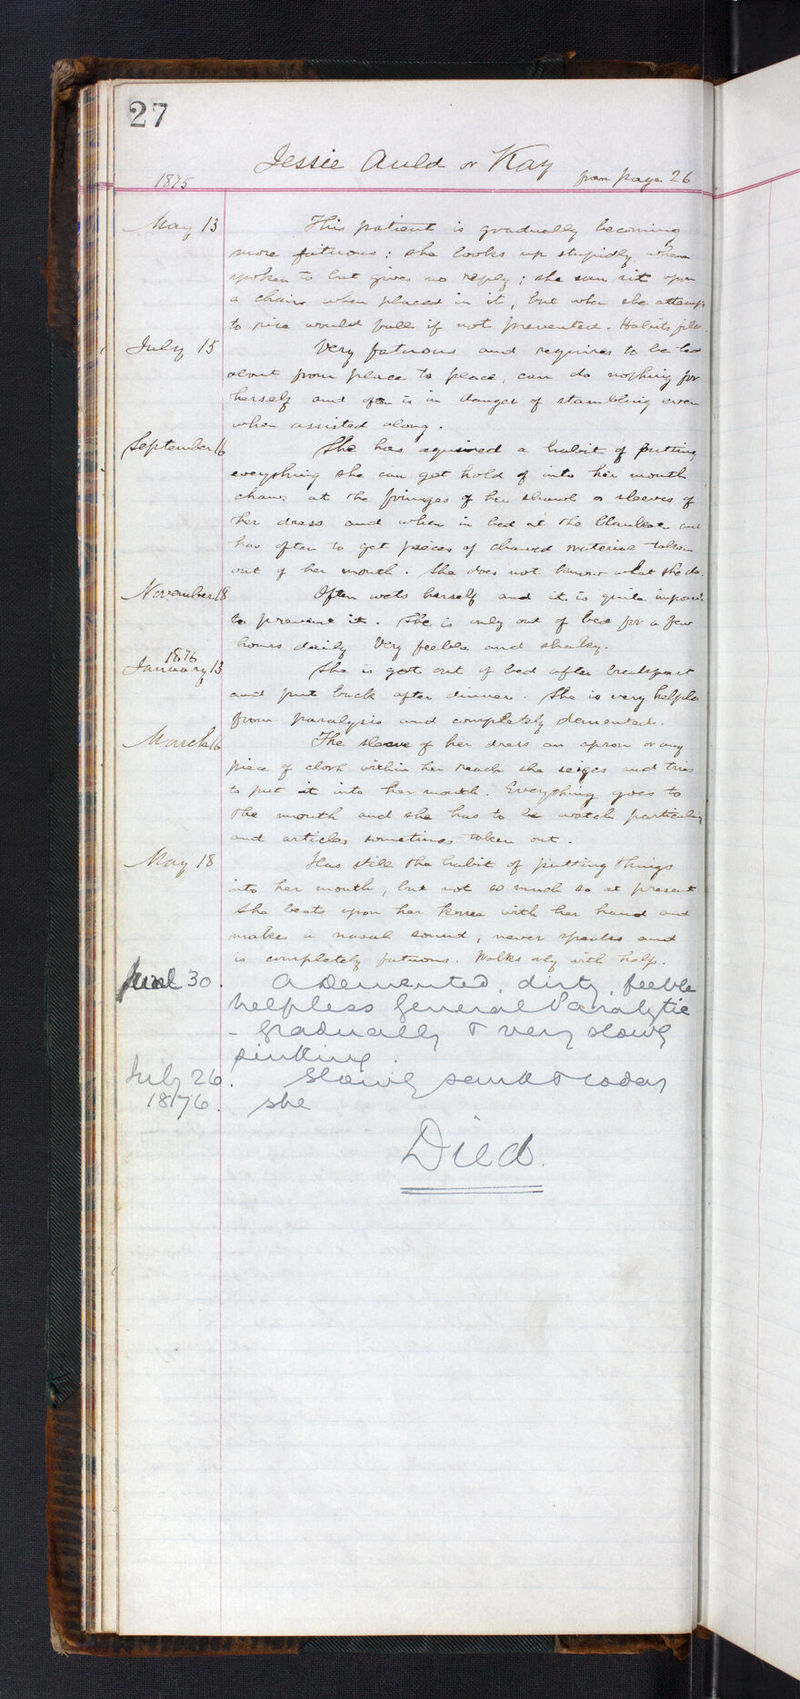 27
Jessie Auld or Kay from page 26
1875
May 13 This patient is gradually becoming
more fatuous: she looks up stupidly when
spoken to but gives no reply; she can sit upon
a chair when placed in it, but when she attempts
to rise would fall if not prevented. Habits
July 15 Very fatuous and requires to be led
about from place to place, can do nothing for
herself and often is in danger of stumbling even
when assisted along.
September 16 She has aquired a habit of putting
everything she can get hold of into her mouth
chaws at the fringes of her shawl or sleeves of
her dress and when in bed at the blankets and
has often to get pieces of chawed material taken
out of her mouth. She does not know what she do
November 18 Often wets herself and it is quite
to prevent it. She is only out of bed for a few
hours daily Very feeble and shaky.
1876
January 13 She is got out of bed after breakfast
and put back after dinner. She is very
from paralysis and completely demented.
March 16 The sleeve of her dress an apron or any
piece of cloth within her reach she seizes and tries
to put it into her mouth. Everything goes to
the mouth and she has to be watch particularly
and articles sometimes taken out.
May 18 Has still the habit of putting things
into her mouth, but not so much so at present
She beats upon her knee with her hand and
makes a nasal sound, never speaks and
is completely fatuous. Walks only with help.
June 30. A Demented, dirty, feeble
helpless General Paralytic
- gradually & very slowly
sinking.
July 26. Slowly sank & today
1876. she
Died.